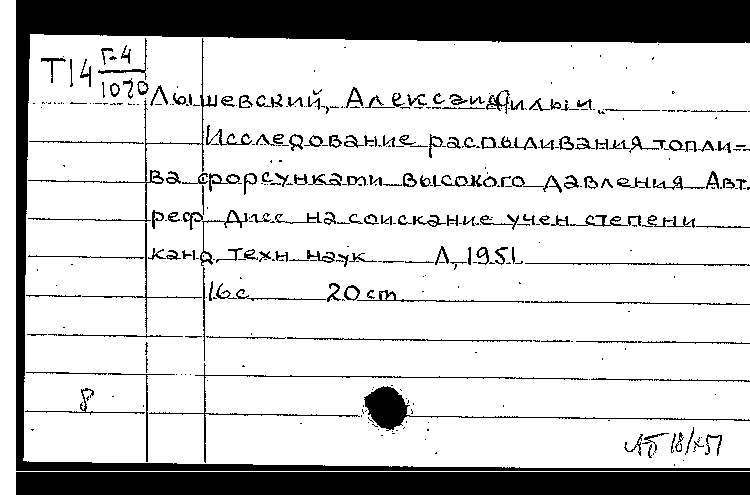 Т14 Г-4
1020
Лышевский, Александр Ильич.
Исследование распыливания топли-
ва форсунками высокого давления Авт.
реф дисс на соискание учен степени
канд. техн наук Л, 1951.
16 с. 20 cm.
8
АБ 18/X51